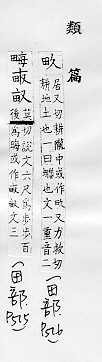 類篇
畂 居又切耕隴中或作畂文又力救切
耕地土也一曰六尺也文一重音二
(田部 P516)
畮畞畝 莫切說文六尺爲步步百
後爲畮或作畞畝文三
(田部 P515)